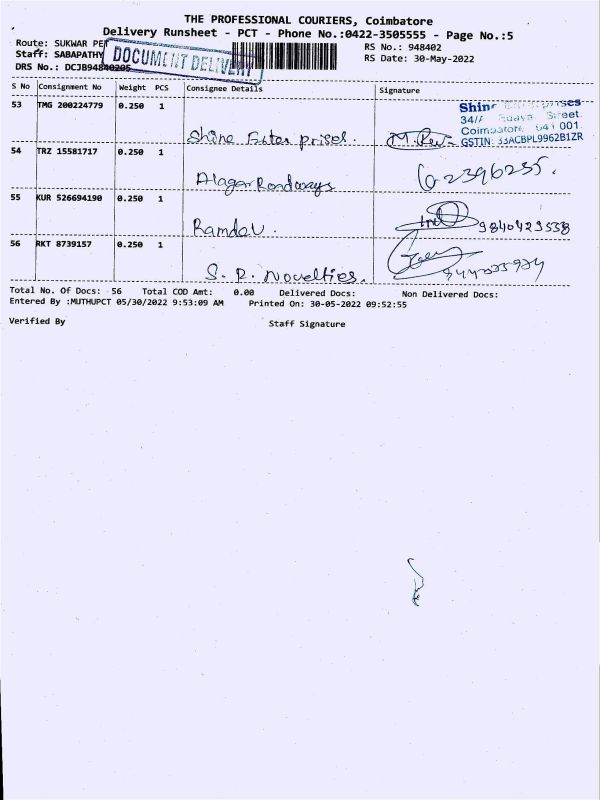 THE PROFESSIONAL COURIERS, Coimbatore
Delivery Runsheet - PCT - Phone No.:0422-3505555 - Page No.:5
Route: SUKWAR PET
RS No.: 948402
Staff: SABAPATHY
DOCUMENT DELIVERY
RS Date: 30-May-2022
DRS No.: DCJB94840205
S No Consignment No Weight PCS Consignee Details Signature
53 TMG 200224779 0.250 1
Shine Enterprises.
Shine Enterprises
34//
Street
Coimbatore 641 001.
GSTIN: 33ACBPL9962B1ZR
54 TRZ 15581717 0.250 1
Alagar Roadways
2396255.
55 KUR 526694190 0.250 1
Ramdev.
9840429558
56 RKT 8739157 0.250 1
S. R. Novelties.
Total No. Of Docs: 56 Total COD Amt: 0.00 Delivered Docs: Non Delivered Docs:
Entered By :MUTHUPCT 05/30/2022 9:53:09 AM Printed On: 30-05-2022 09:52:55
Verified By Staff Signature